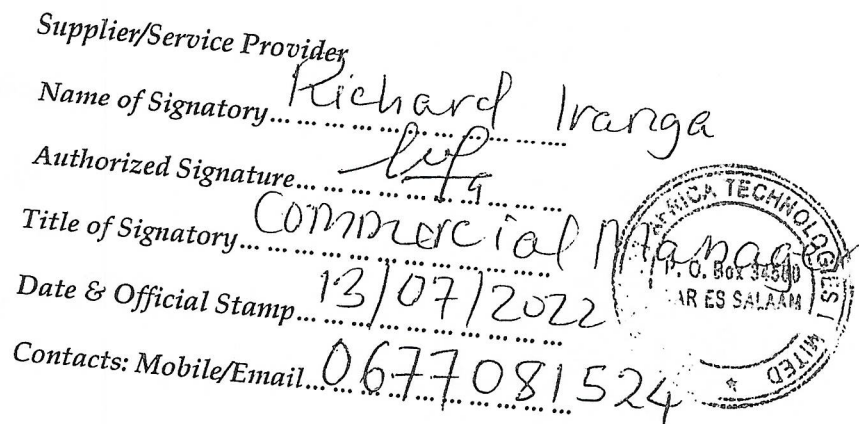 Supplier/Service Provider
Name of Signatory... Richard Iranga
Authorized Signature...
Title of Signatory... Commercial Manager
Date & Official Stamp... 13/07/2022
Contacts: Mobile/Email... 0677081524
AFRICA TECHNOLOGIES
P. O. Box
ES SALAAM